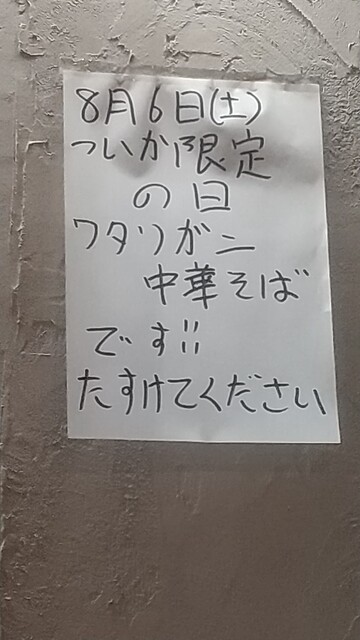 8月6日(土)
ついか限定
の日
ワタリガニ
中華そば
です!!
たすけてください